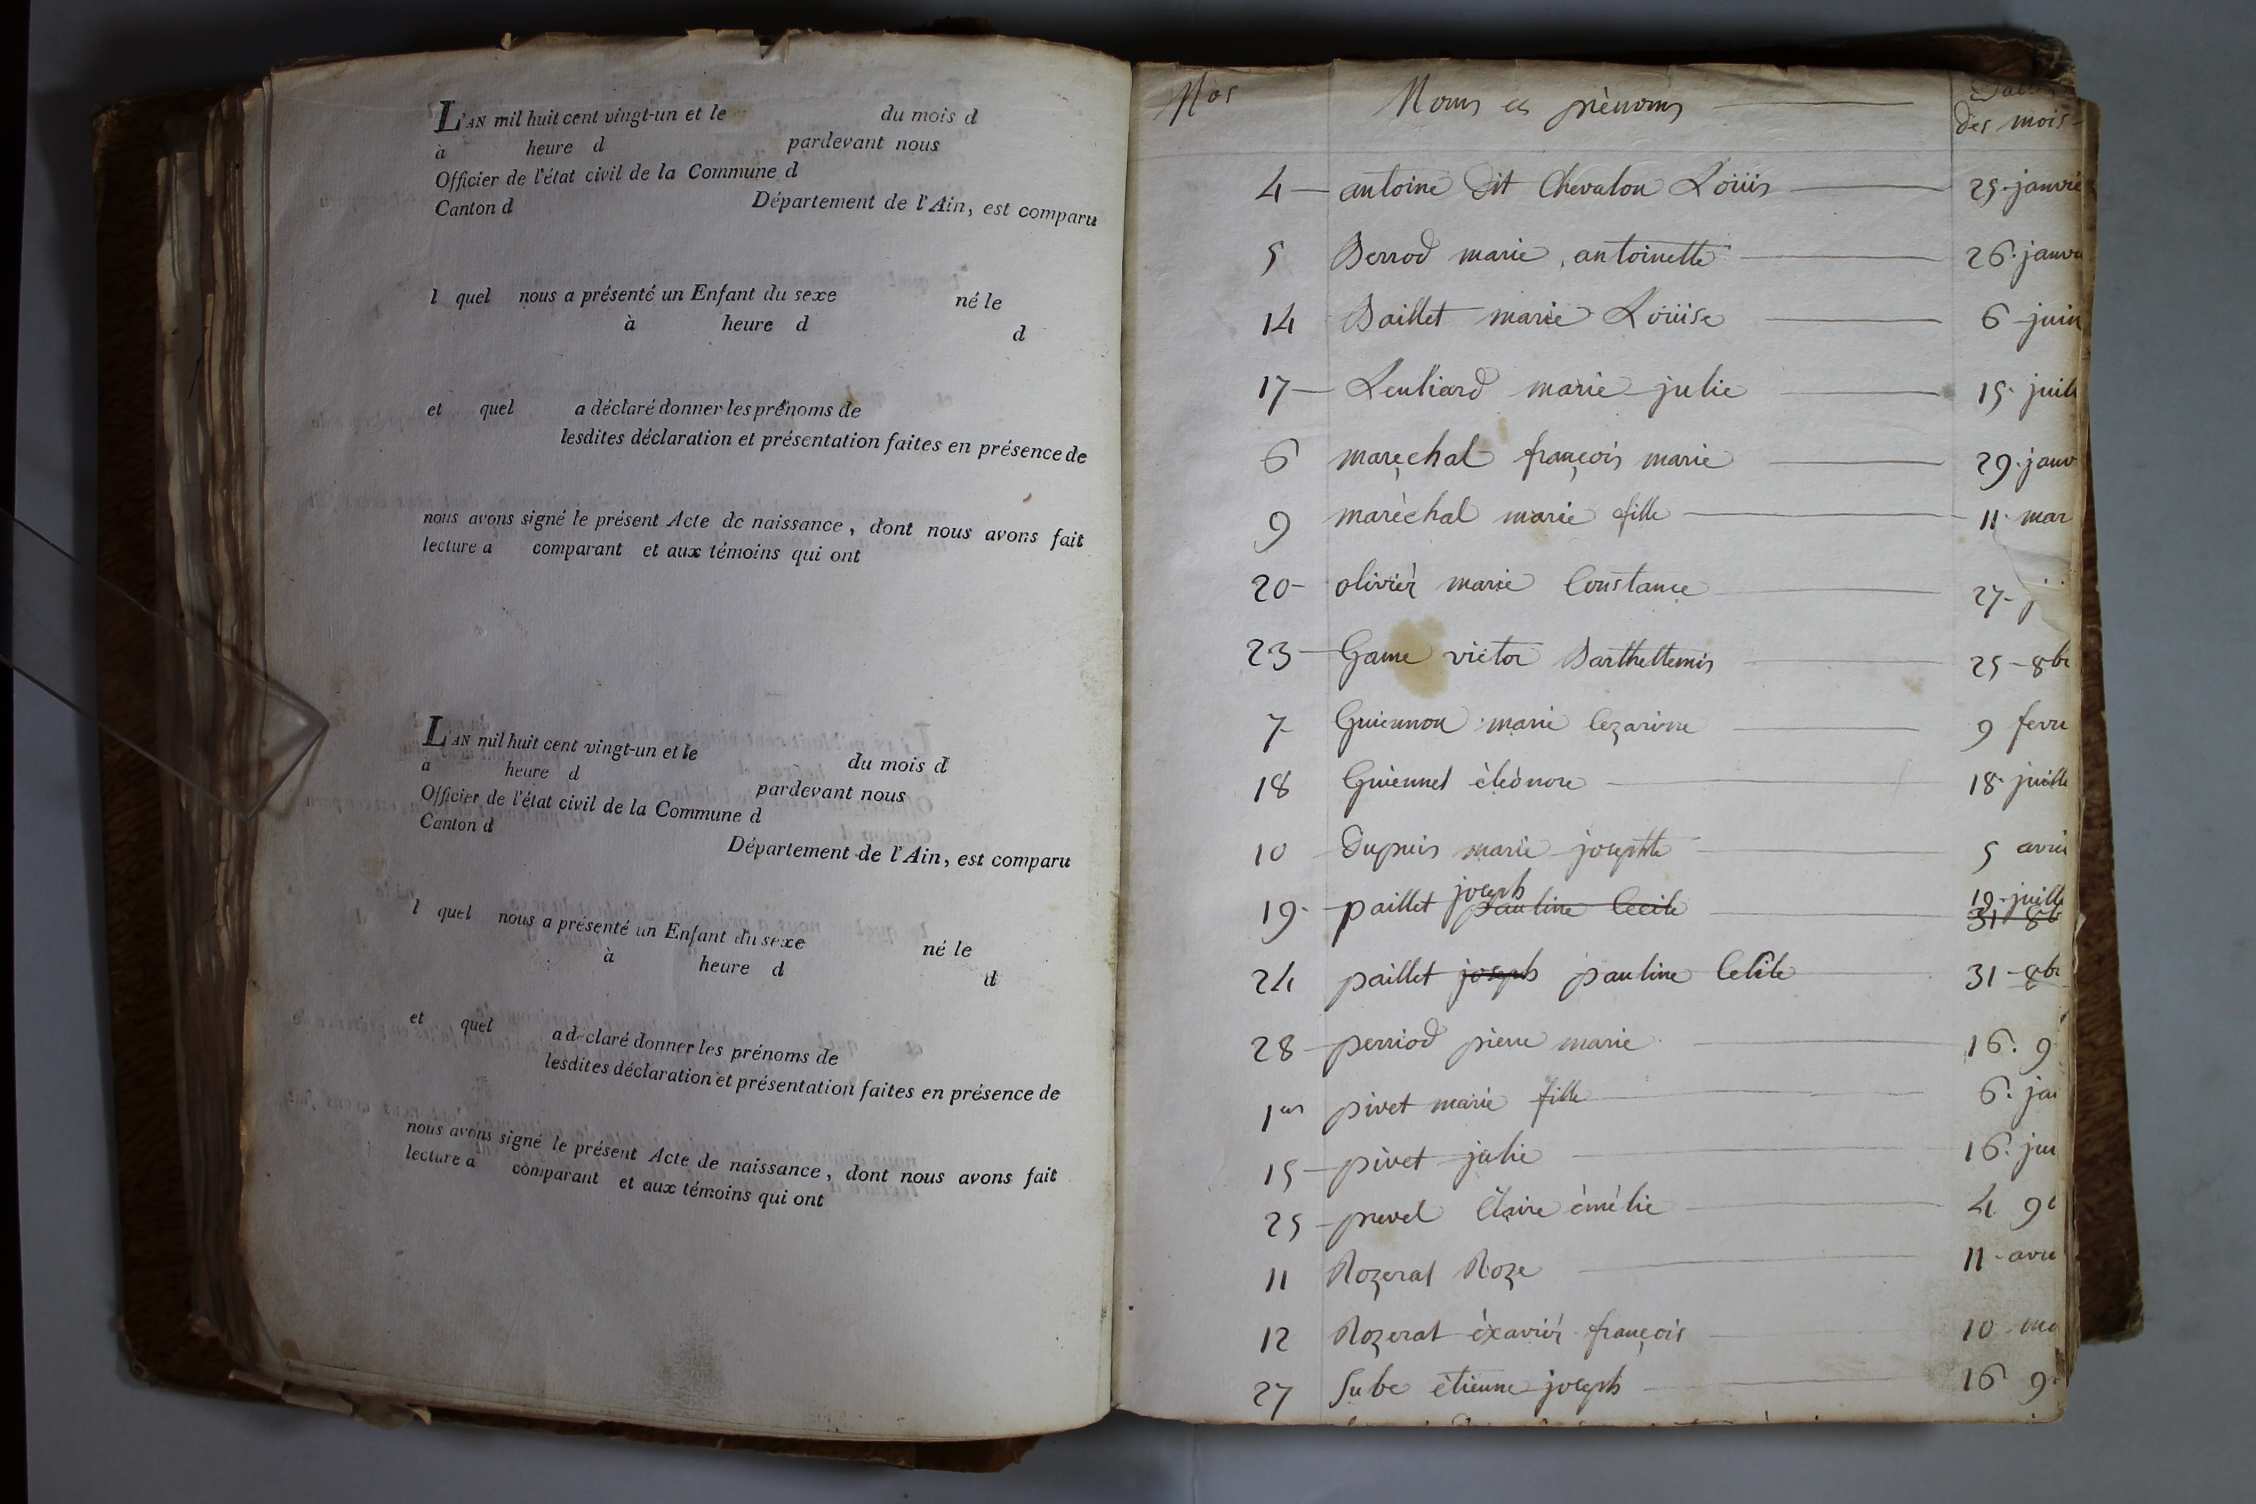 L'AN mil huit cent vingt-un et le du mois d
à heure d pardevant nous
Officier de l'état civil de la Commune d
Canton d Département de l'Ain, est comparu
l quel nous a présenté un Enfant du sexe né le
à heure d d
et quel a déclaré donner les prénoms de
lesdites déclaration et présentation faites en présence de
nous avons signé le présent Acte de naissance, dont nous avons fait
lecture a comparant et aux témoins qui ont
L'AN mil huit cent vingt-un et le du mois d
à heure d pardevant nous
Officier de l'état civil de la Commune d
Canton d Département de l'Ain, est comparu
l quel nous a présenté un Enfant du sexe né le
à heure d d
et quel a déclaré donner les prénoms de
lesdites déclaration et présentation faites en présence de
nous avons signé le présent Acte de naissance, dont nous avons fait
lecture a comparant et aux témoins qui ont
Nos Noms et prènoms des mois
4 antoine dit Chevalon Loüis 25 janvie
5 Berrod marie antoinette 26 janvi
14 Baillet marie Loüise 6 juin
17 Leuliard marie julie 15 juil
6 marechal françois marie 29 janv
9 marèchal marie fille 11 mar
20 olivièr marie Constance 27 j
23 Game victor Barthellemis 25 8br
7 Guiennon marie Cezarine 9 fevr
18 Guiennet élèonore 18 juille
10 Dupuis marie josephte 5 avri
19 paillet joseph pauline Cecile 19 juille 31 8b
24 paillet joseph pauline Celile 31 8br
28 perriod pierre marie 16 9
1er pivet marie fille 6 jan
15 pivet julie 16 jui
25 prevel Claire émélie 4 9b
11 Rozerat Roze 11 avri
12 Rozerat éxaviér françois 10 ma
27 Sube étienne joseph 16 9